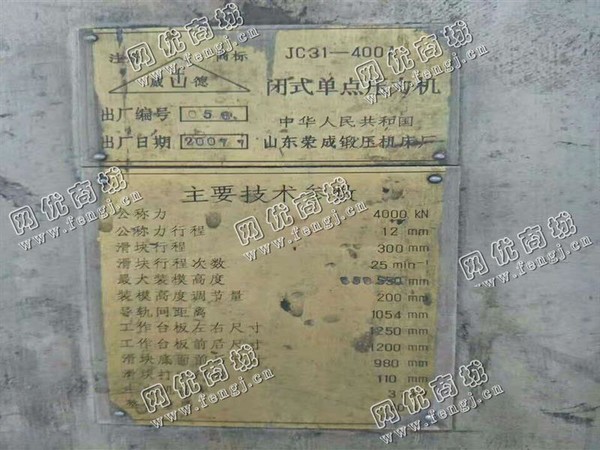 注 商标
威山德
JC31-400
闭式单点压力机
出厂编号 05
中华人民共和国
出厂日期 2007 7
山东荣成锻压机床厂
主要技术参数
公称力 4000 kN
公称力行程 12 mm
滑块行程 300 mm
滑块行程次数 25 min⁻¹
最大装模高度 550 mm
装模高度调节量 200 mm
导轨间距离 1054 mm
工作台板左右尺寸 1250 mm
工作台板前后尺寸 1200 mm
滑块底面前 980 mm
滑块打 110 mm
网优商城
www.fengj.cn
网优商城
www.fengj.cn
网优商城
www.fengj.cn
网优商城
www.fengj.cn
网优商城
www.fengj.cn